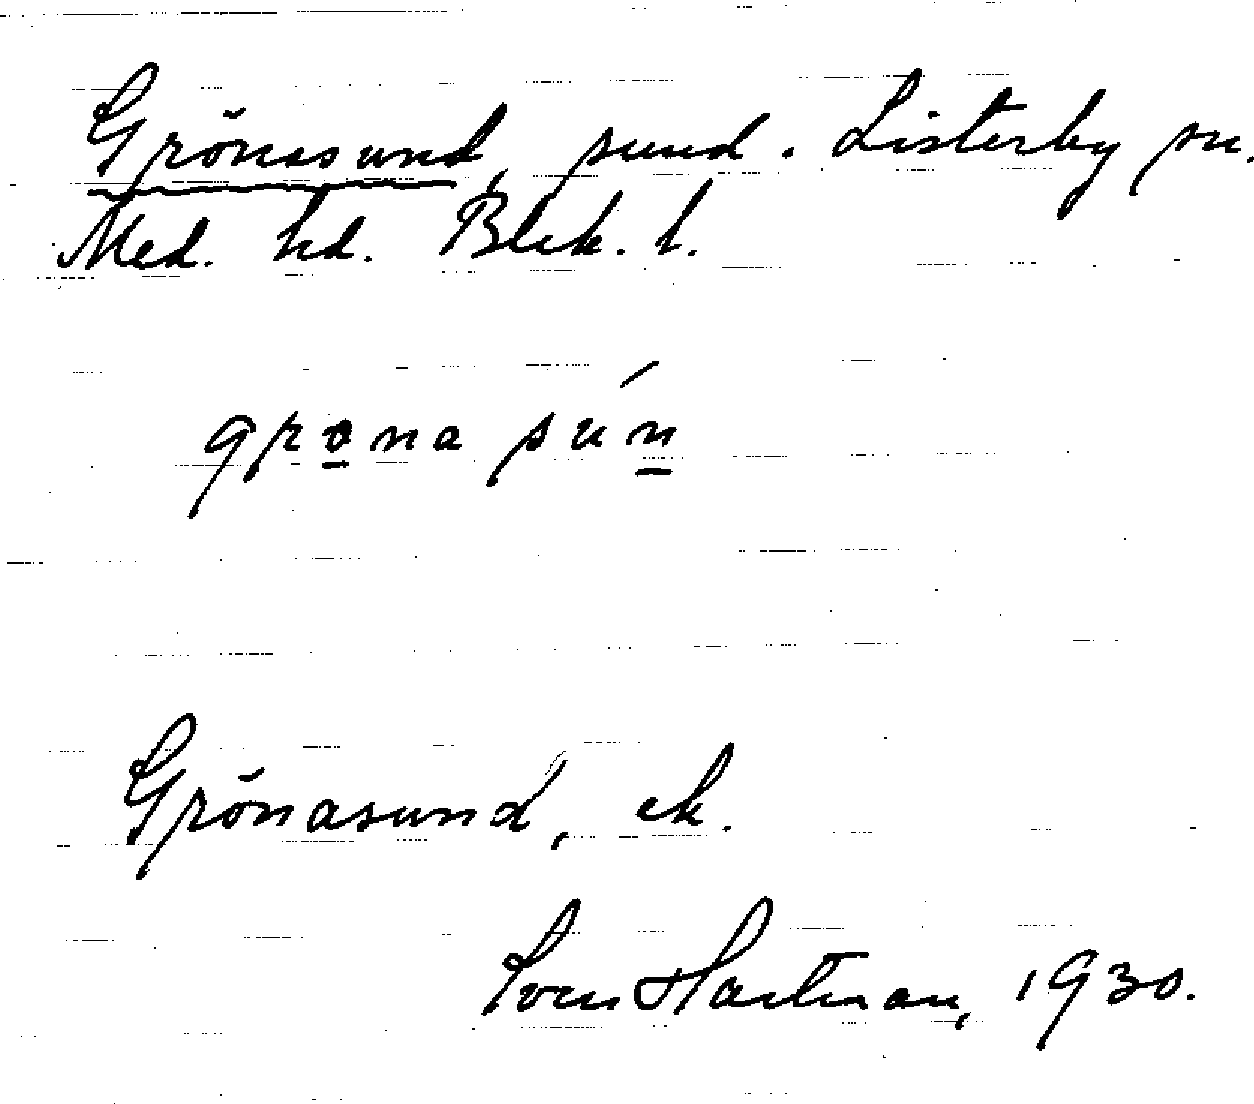 Grönasund, sund. Listerby sn.
Med. hd. Blek. l.
grøna sún
Grönasund, ek.
Sven Hartman, 1930.